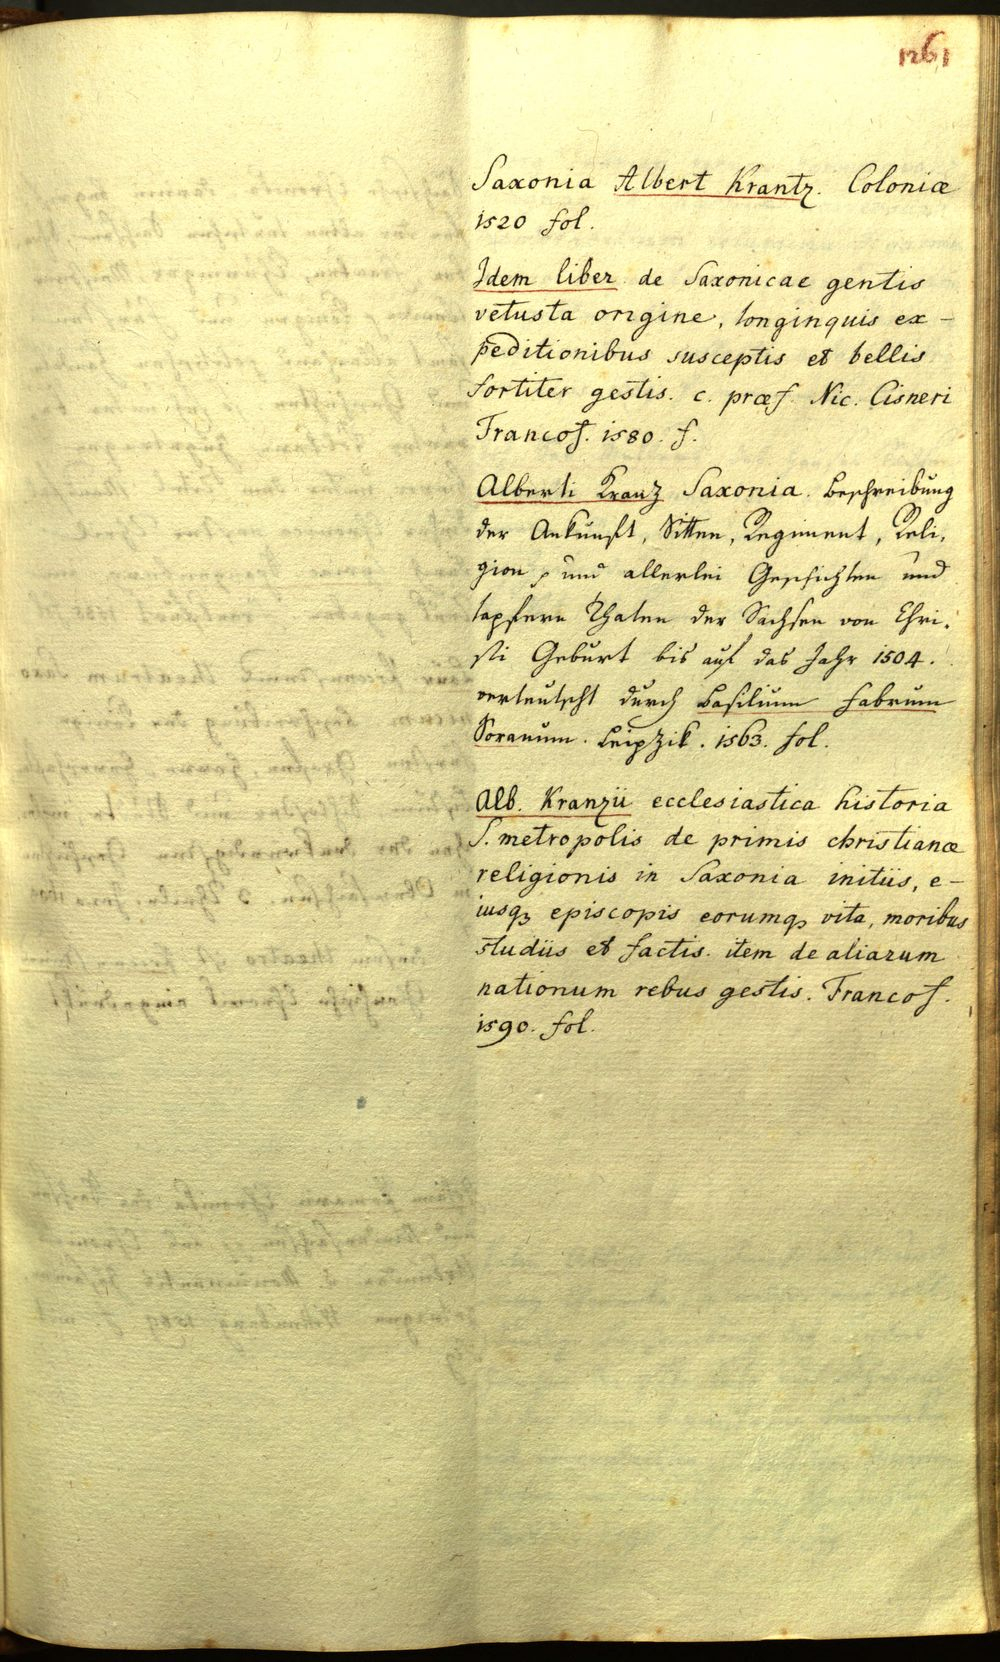 1261
Saxonia Albert Krantz. Coloniæ
1520 fol.
Idem liber de Saxonicae gentis
vetusta origine, longinquis ex-
peditionibus susceptis et bellis
fortiter gestis. c. præf. Nic. Cisneri
Francof. 1580. f.
Alberti Kranz Saxonia. Beschreibung
der Ankunft, Sitten, Regiment, Reli-
gion, und allerlei Geschichten und
tapfern Thaten der Sachsen von Chri-
sti Geburt bis auf das Jahr 1504.
verteutscht durch Basilium Fabrum
Soranum. Leipzik. 1563. fol.
Alb. Kranzii ecclesiastica historia
S. metropolis de primis christianæ
religionis in Saxonia initiis, e-
iusq3 episcopis eorumq3 vita, moribus
studiis et factis. item de aliarum
nationum rebus gestis. Francof.
1590. fol.